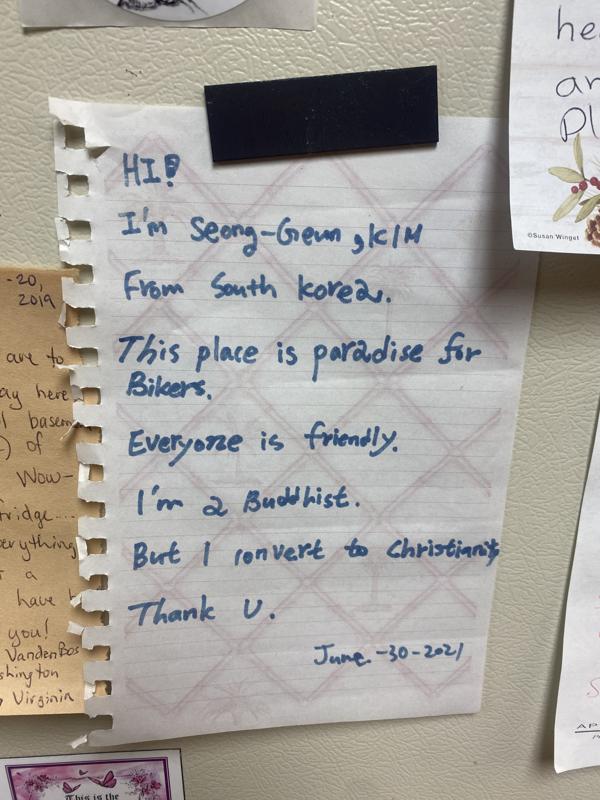 HI!
I'm Seong-Geun, KIM
From South Korea.
This place is paradise for
Bikers.
Everyone is friendly.
I'm a Buddhist.
But I convert to Christianity
Thank U.
June.-30-2021
-20,
2019
are to
ay here
basem
) of
Wow-
fridge....
erything
a
have
you!
VandenBos
shington
Virginia
he
an
Pl
©Susan Winget
This is the